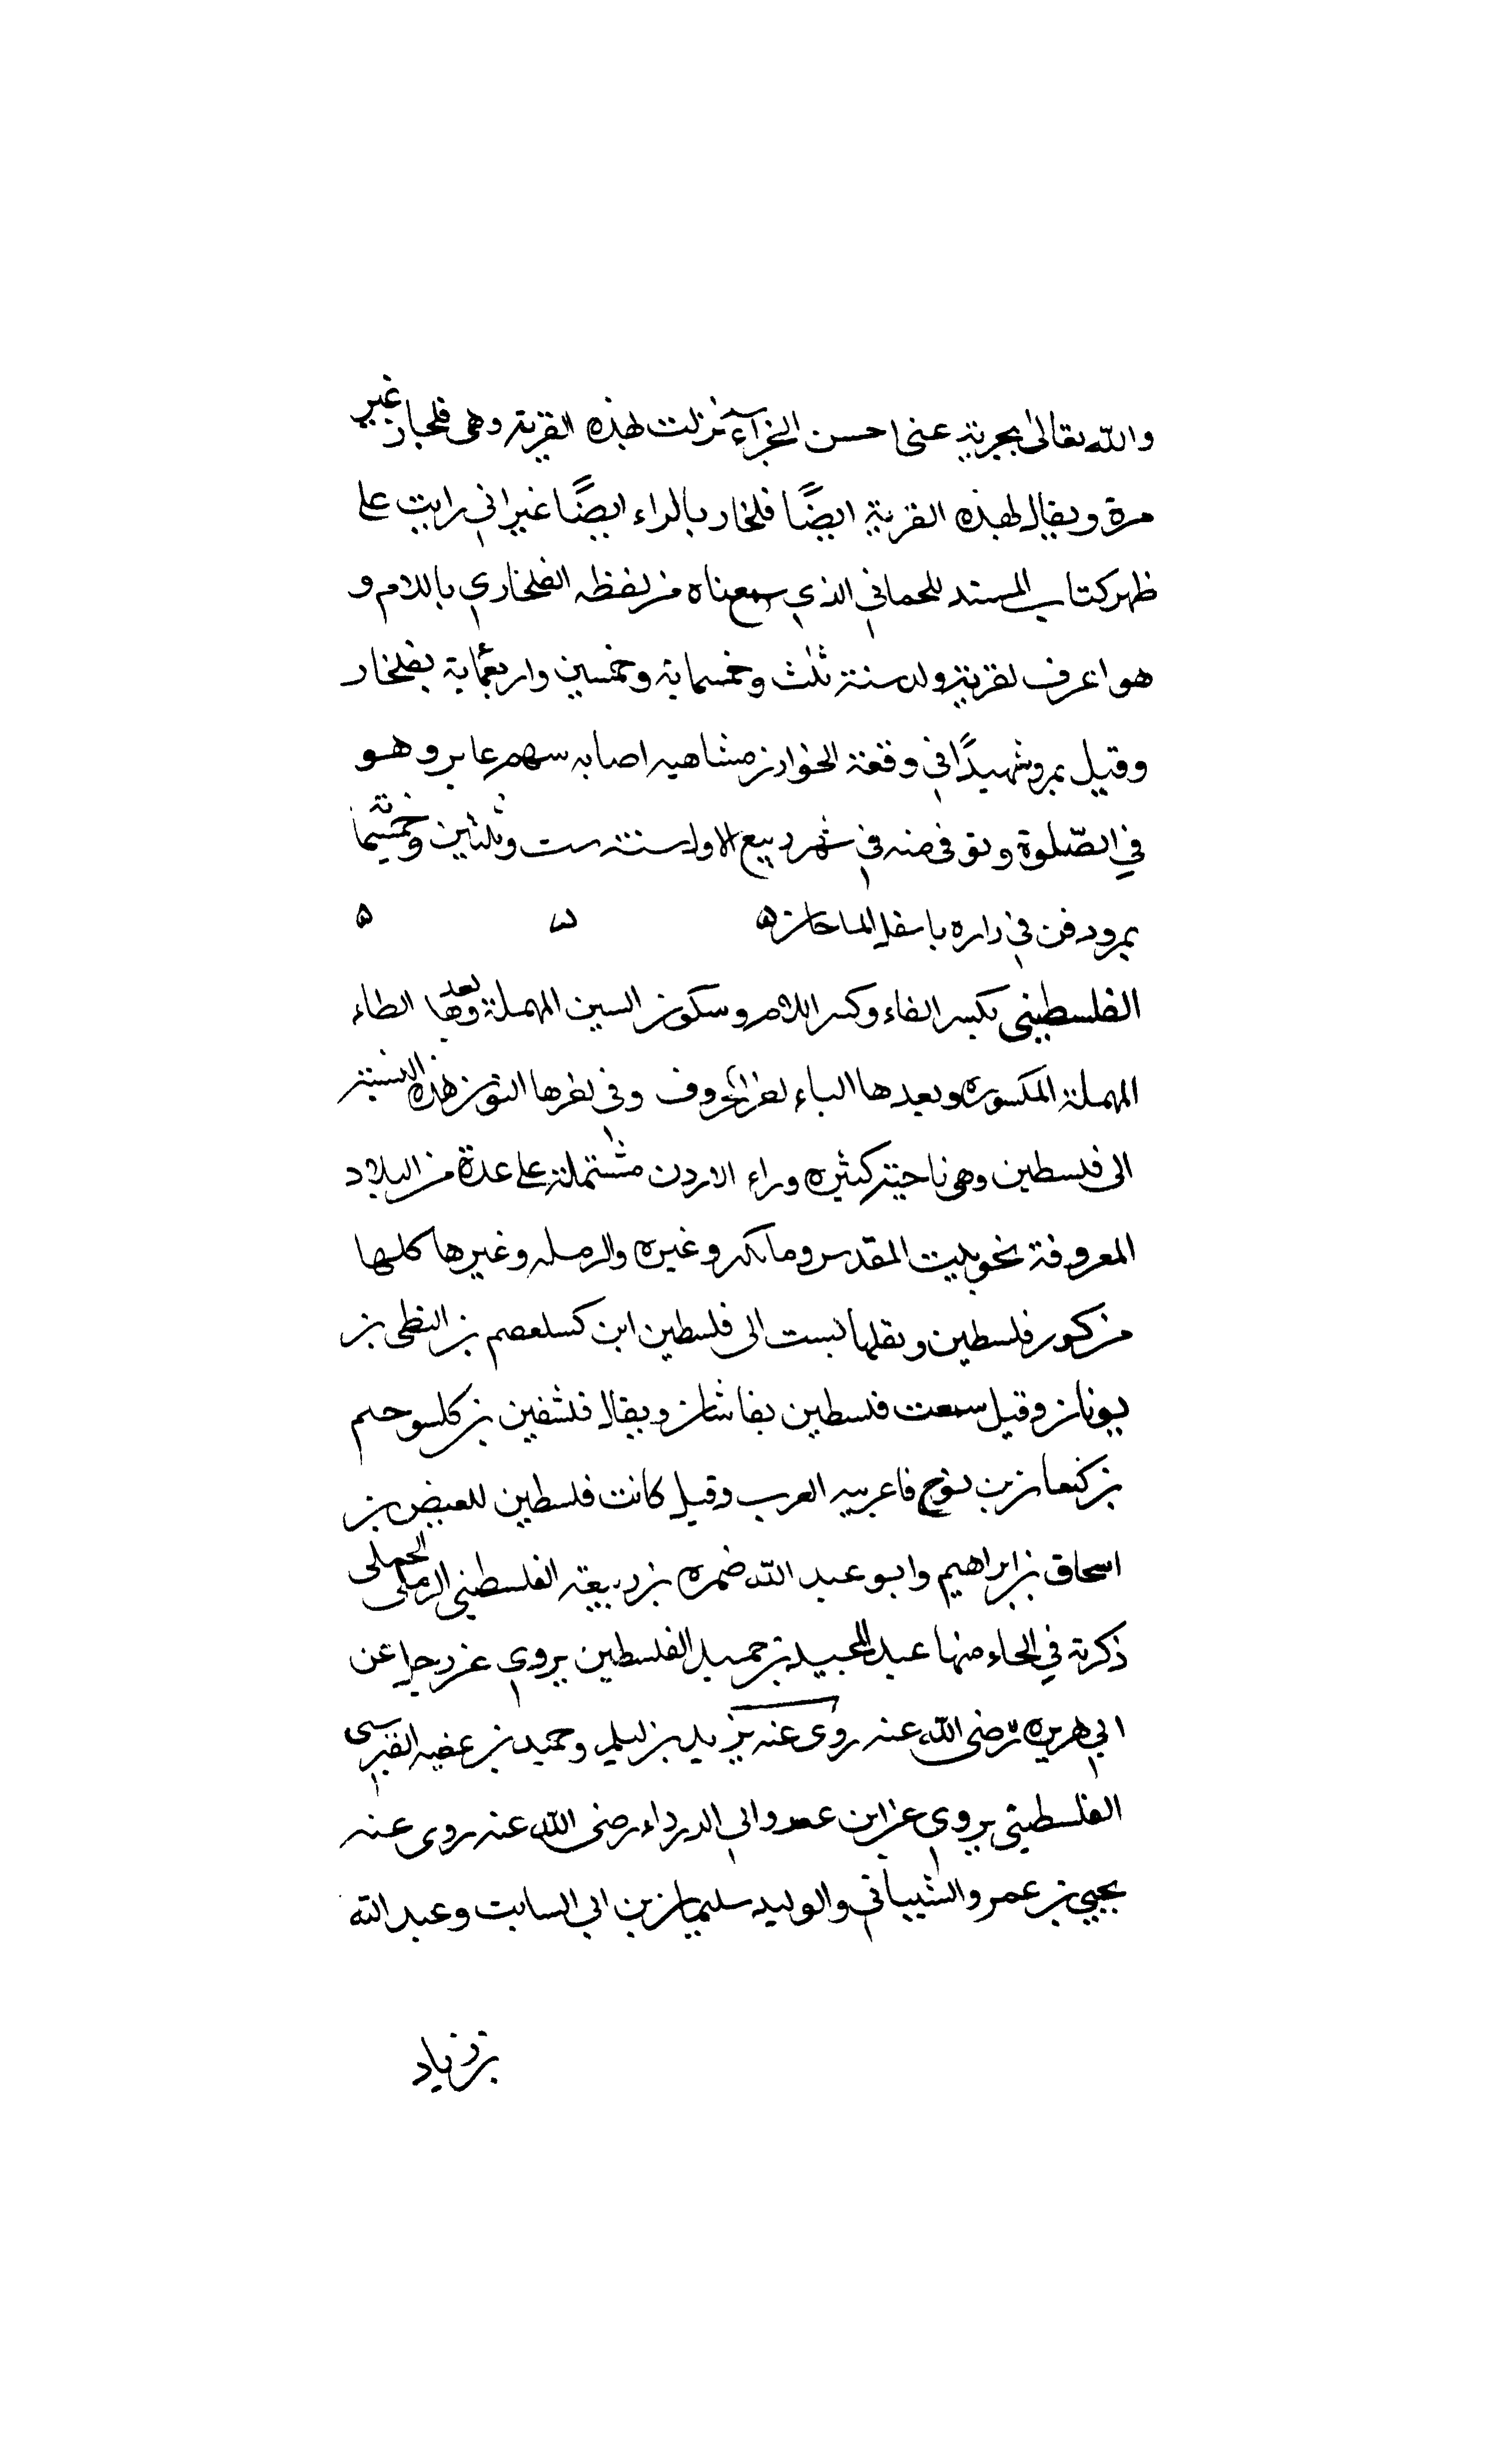 والله تعالى يجزيه عنى احسن الجزآء نزلت لهذه القرية وهى فلخار غير
مرة ويقال لهذه القرية ايضًا فلخار بالراء ايضًا غير انى رايت على
ظهر كتاب المسند للحماني الذي سمعناه من لفظه الفلخاري باللام و
هو اعرف لقريته ولد سنة ثلث وخمسماية وخمسين واربعماية بفلخار
وقيل بمرو شهيدًا في وقعة الخوارزمشاهيه اصابه سهم عاير وهو
في الصّلوة وتوفى منه في شهر ربيع الاول سنة ست وثلثين وخمسما ئة
بمرو دفن في داره باسفل الماخان ه ه
الفلسطينى بكسر الفاء وكسر اللام وسكون السين المهملة وبعدها الطاء
المهملة المكسوره وبعدها الياء اخر الحروف وفي اخرها النون هذه النسبة
الى فلسطين وهى ناحية كثيره وراء الاردن مشتملة على عدة من البلاد
المعروفة نحو بيت المقدس وما وغيره والرمله وغيرها كلها
من كور فلسطين و نسبت الى فلسطين ابن بن بن
يونان وقيل سمعت فلسطين ويقال بن
بن كنعان بن نوح فاعربيه العرب وقيل كانت فلسطين للعيض بن
اسحاق بن ابراهيم وابو عبد الله ضمره بن ربيعة الفلسطينى الرملى الحملى
ذكرته في الحاء منها بن جميل الفلسطين يروي عن رجل عن
ابي هريره رضى الله عنه روى عنه يزيد بن وحميد بن عقبه القرسى
الفلسطيني يروي عن ابن عمر وابي الدرداء رضى الله عنه روى عنه
يحيي بن عمرو الشيباني والوليد سليمان بن ابي السايب وعبد الله
بن زياد